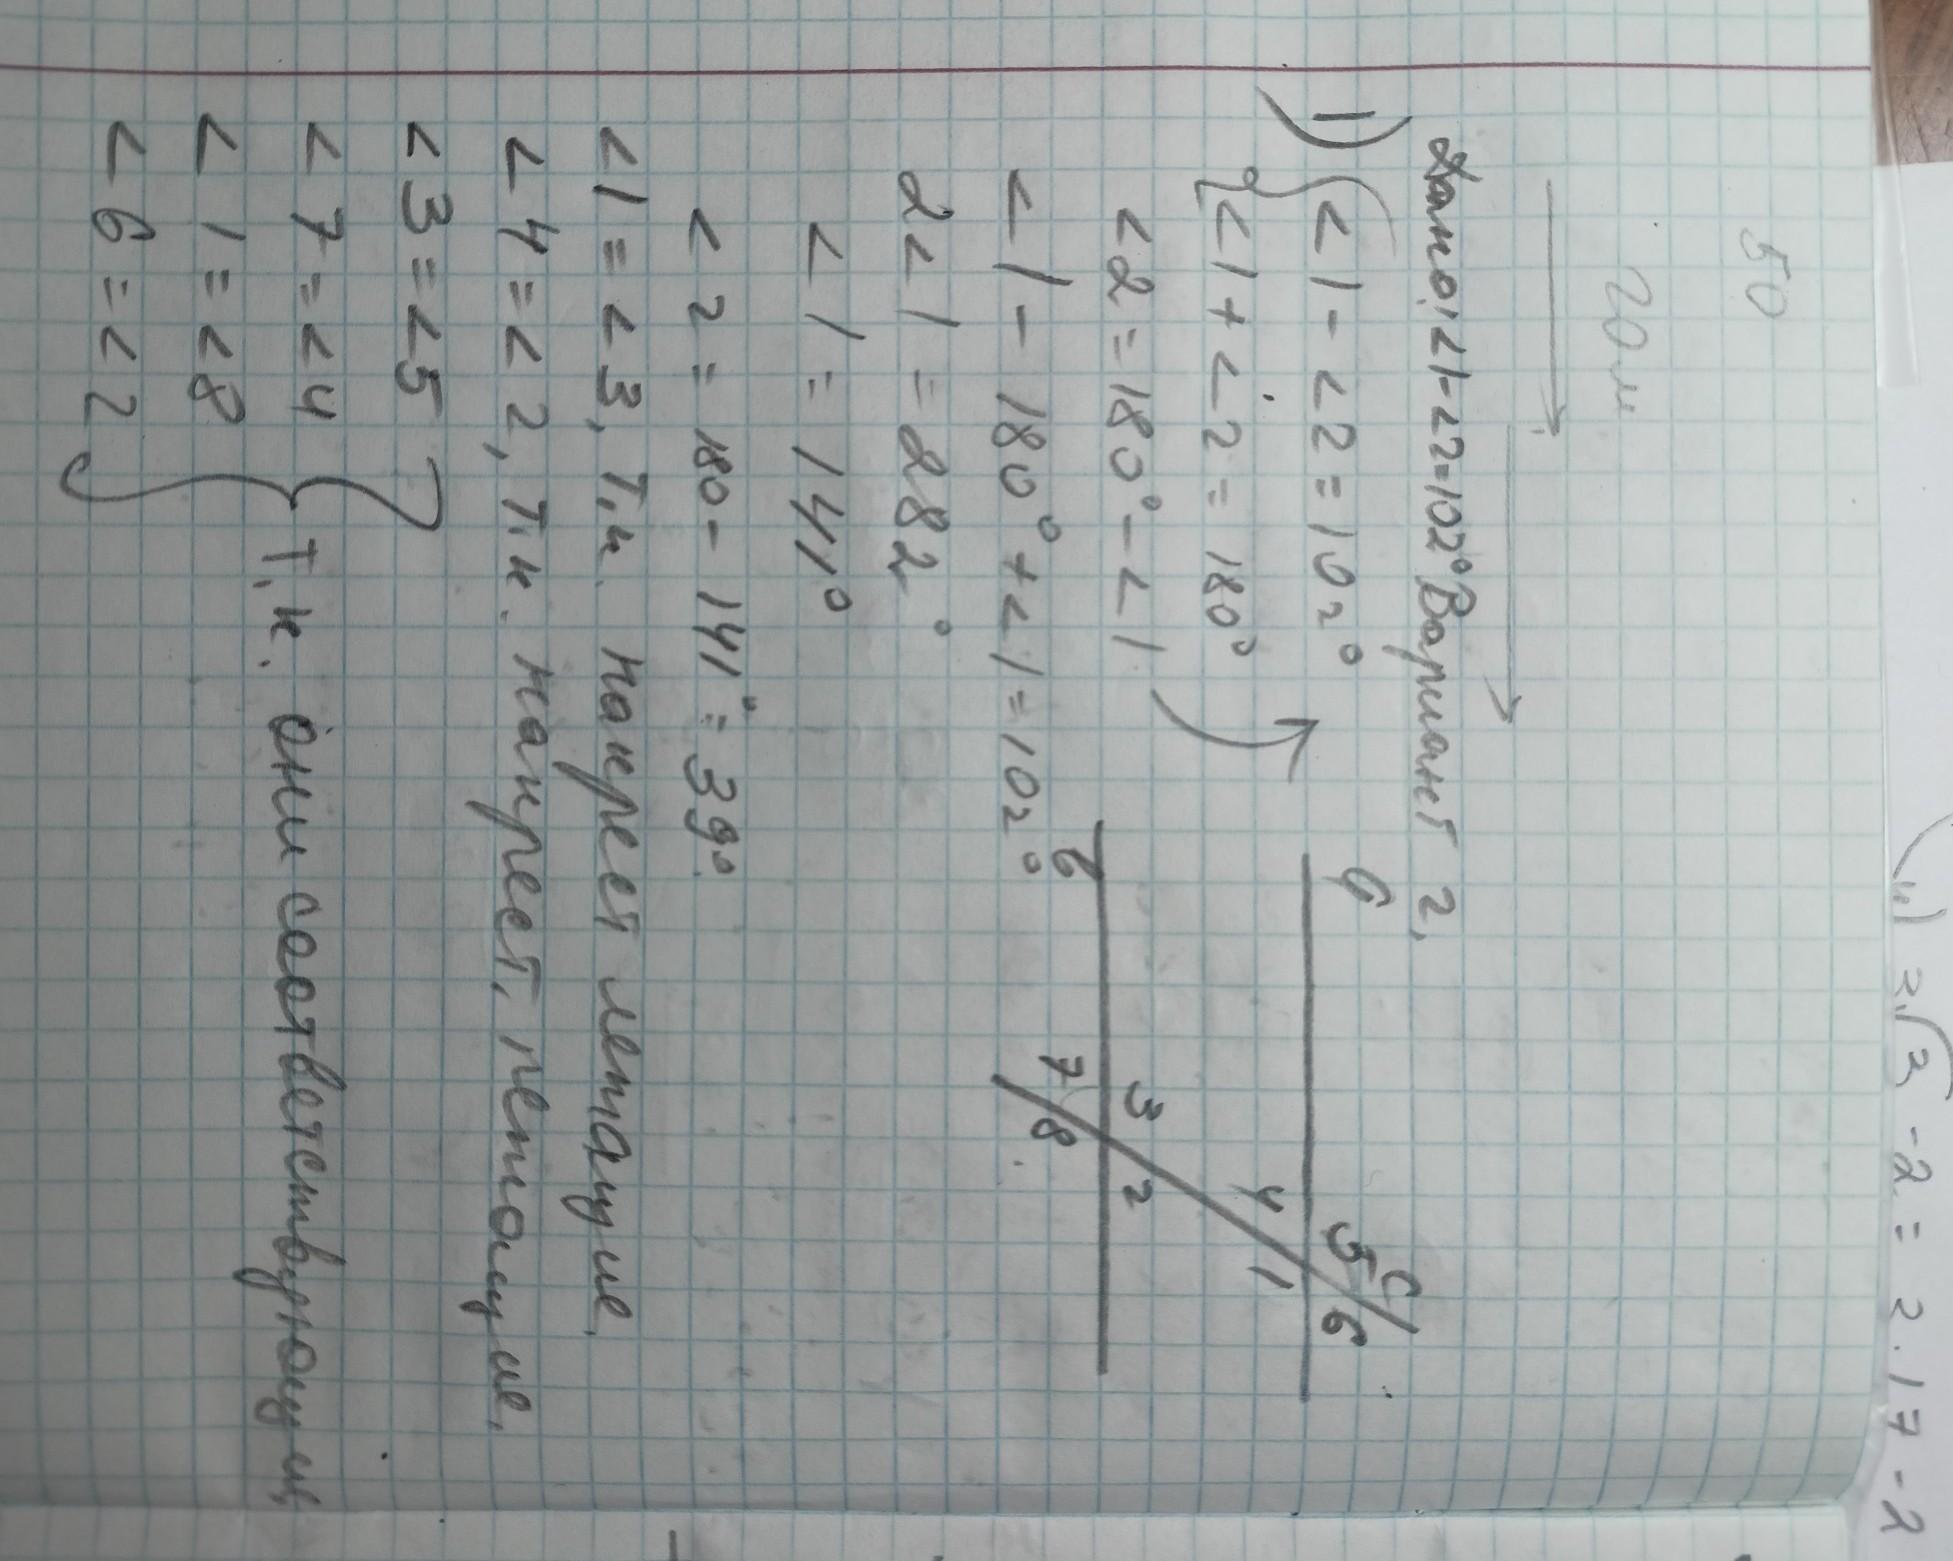 50
20м
Дано: <1-<2=102° Вариант 2.
1) <1 - <2 = 102°
<1 + <2 = 180°
<2 = 180° - <1
<1 - 180° + <1 = 102°
2<1 = 282°
<1 = 141°
<2 = 180 - 141° = 39°
<1 = <3, т.к. накрест лежащие.
<4 = <2, т.к. накрест. лежащие.
<3 = <5
<7 = <4
<1 = <8
<6 = <2
т.к. они соответствующие
5 c
6
4 1
3 2
7 8
3 - 2 = 2.17 - 2